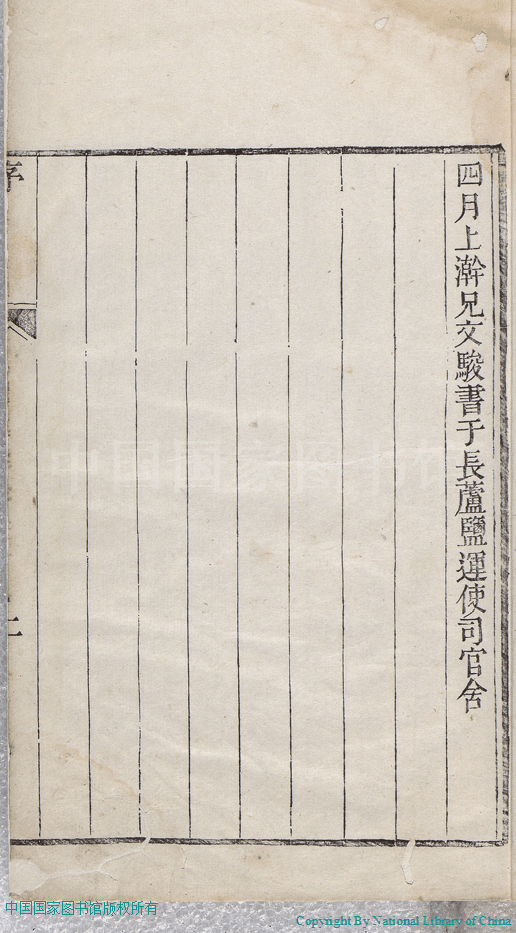 四月上澣兄文駿書于長蘆鹽運使司官舍
序
中国国家图书馆
中国国家图书馆版权所有
Copyright By National Library of China